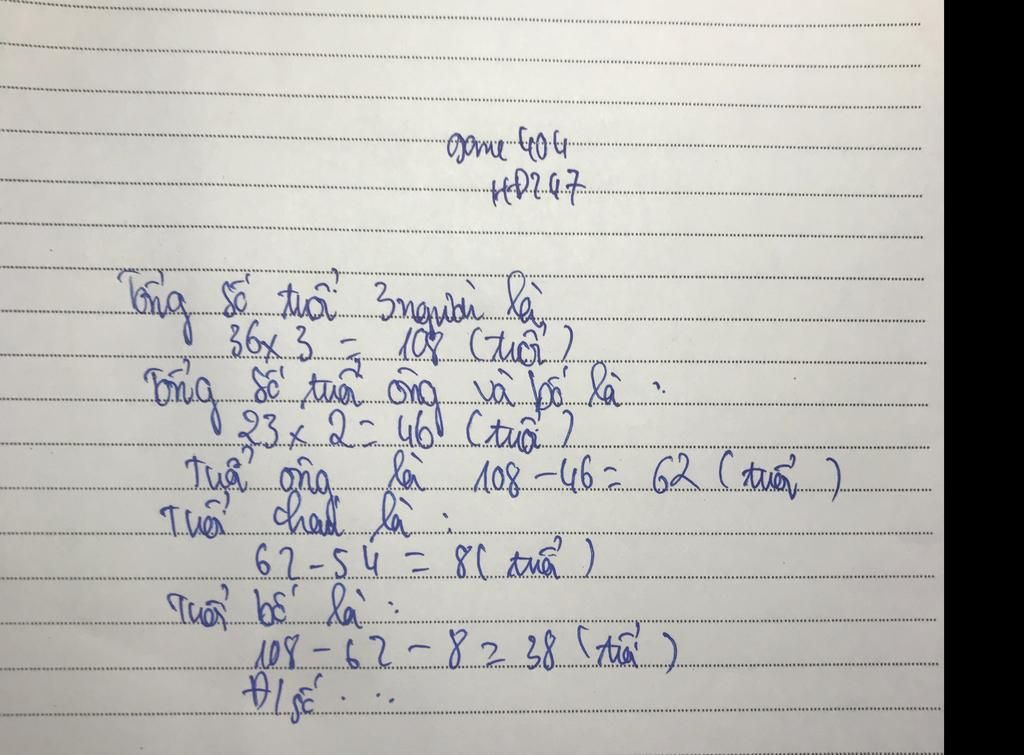 game 404
HĐ247
Tổng số tuổi 3 người là
36 x 3 = 108 (tuổi)
Tổng số tuổi ông và bố là :
23 x 2 = 46 (tuổi)
Tuổi ông là 108 - 46 = 62 (tuổi)
Tuổi cháu là :
62 - 54 = 8 (tuổi)
Tuổi bố là :
108 - 62 - 8 = 38 (tuổi)
Đ/số . . .